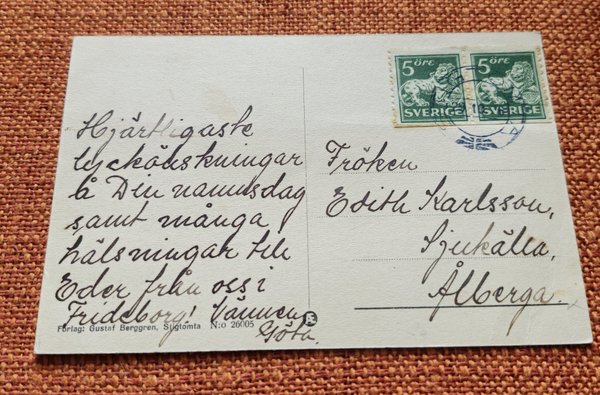 Hjärtligaste
lyckönskningar
å Din namnsdag
samt många
hälsningar till
Eder från oss i
Frideborg! Vännen
Göta.
Förlag: Gustaf Berggren, Stigtomta N:o 26005
5 ÖRE
SVERIGE
5 ÖRE
SVERIGE
Fröken
Edith Karlsson,
Sjukälla,
Ålberga.